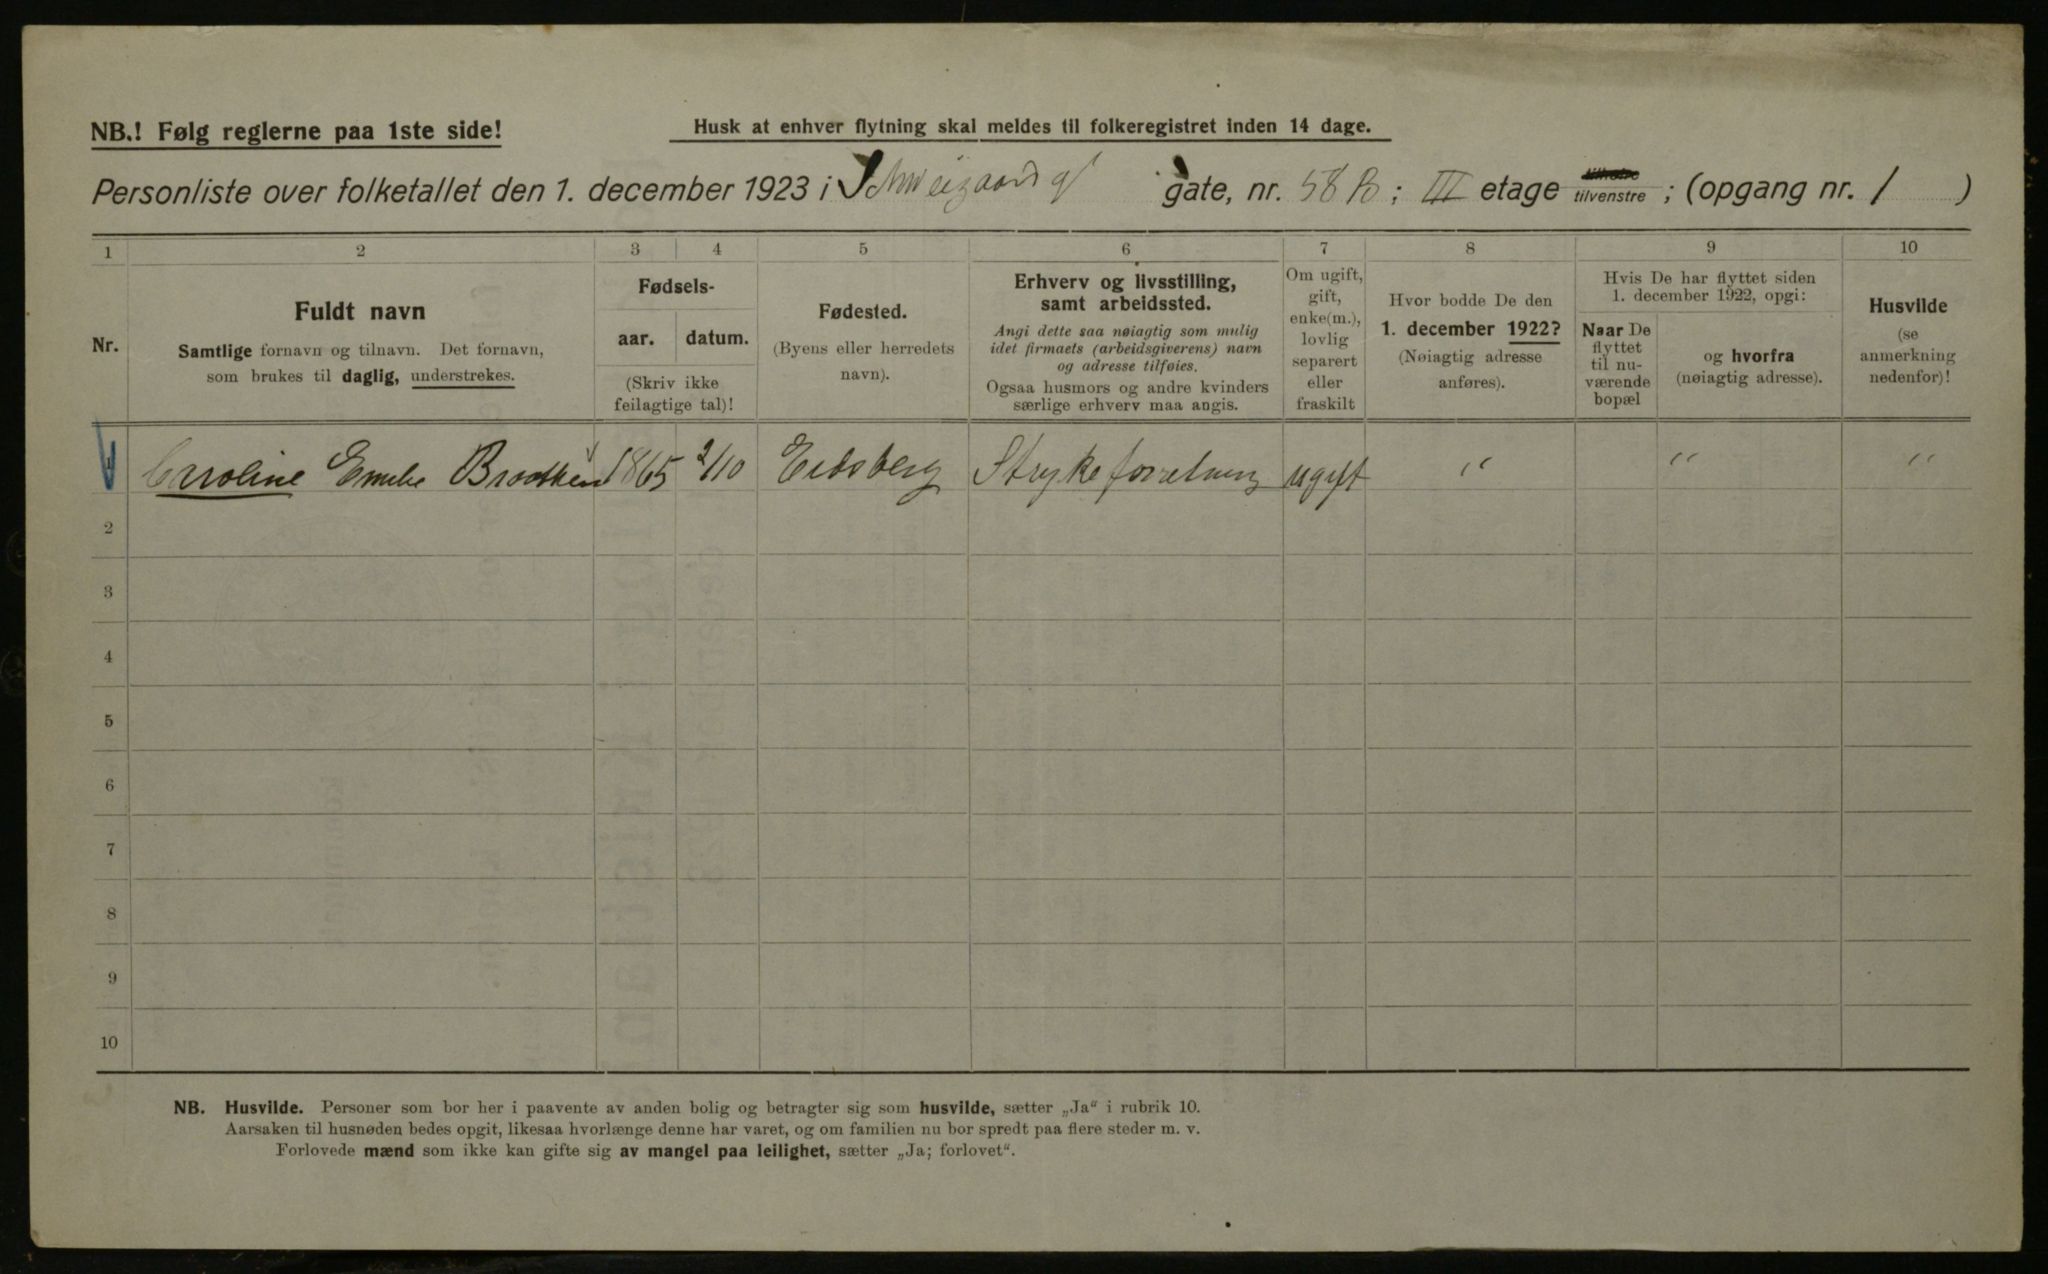 NB.! Følg reglerne paa 1ste side!
Husk at enhver flytning skal meldes til folkeregistret inden 14 dage.
Personliste over folketallet den 1. december 1923 i Schweigaards gate, nr. 58 B ; III etage tilhøire tilvenstre ; (opgang nr. 1 )
1 2 3 4 5 6 7 8 9 10
Nr.
Fuldt navn
Samtlige fornavn og tilnavn. Det fornavn,
som brukes til daglig, understrekes.
Fødsels-
aar. datum.
(Skriv ikke
feilagtige tal)!
Fødested.
(Byens eller herredets
navn).
Erhverv og livsstilling,
samt arbeidssted.
Angi dette saa nøiagtig som mulig
idet firmaets (arbeidsgiverens) navn
og adresse tilføies.
Ogsaa husmors og andre kvinders
særlige erhverv maa angis.
Om ugift,
gift,
enke(m.),
lovlig
separert
eller
fraskilt
Hvor bodde De den
1. december 1922?
(Nøiagtig adresse
anføres).
Hvis De har flyttet siden
1. december 1922, opgi:
Naar De
flyttet
til nu-
værende
bopæl
og hvorfra
(nøiagtig adresse).
Husvilde
(se
anmerkning
nedenfor)!
1 Caroline Emilie 1865 2/10 Eidsberg Strykeforretning ugift " " "
2
3
4
5
6
7
8
9
10
NB. Husvilde. Personer som bor her i paavente av anden bolig og betragter sig som husvilde, sætter „Ja“ i rubrik 10.
Aarsaken til husnøden bedes opgit, likesaa hvorlænge denne har varet, og om familien nu bor spredt paa flere steder m. v.
Forlovede mænd som ikke kan gifte sig av mangel paa leilighet, sætter „Ja; forlovet“.